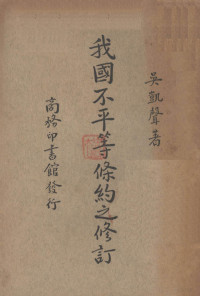 吳凱聲著
我國不平等條約之修訂
商務印書館發行